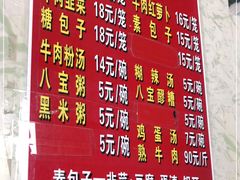 牛肉韭菜 18元/笼 牛肉红萝卜 16元/笼
糖包子 18元/笼 素包子 15元/笼
15元/笼
牛肉粉汤 14元/碗 糊辣汤 7元/碗
八宝粥 5元/碗 八宝醪糟 5元/碗
黑米粥 5元/碗 鸡蛋汤 7元/碗
5元/碗 熟牛肉 90元/斤
素包子—韭菜